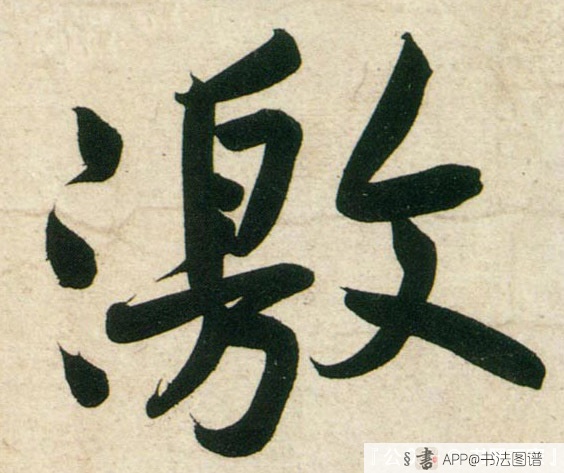 激
§書 APP@书法图谱